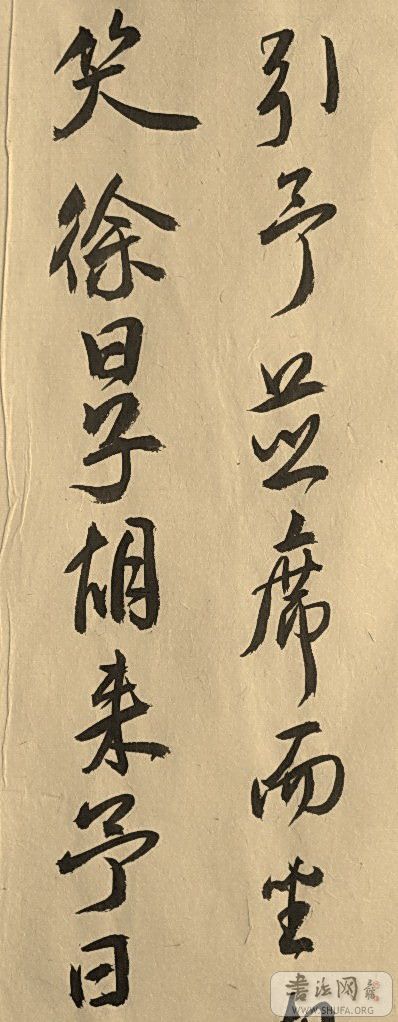 引予並席而坐
笑徐曰子胡来予曰
書法网
WWW.SHUFA.ORG